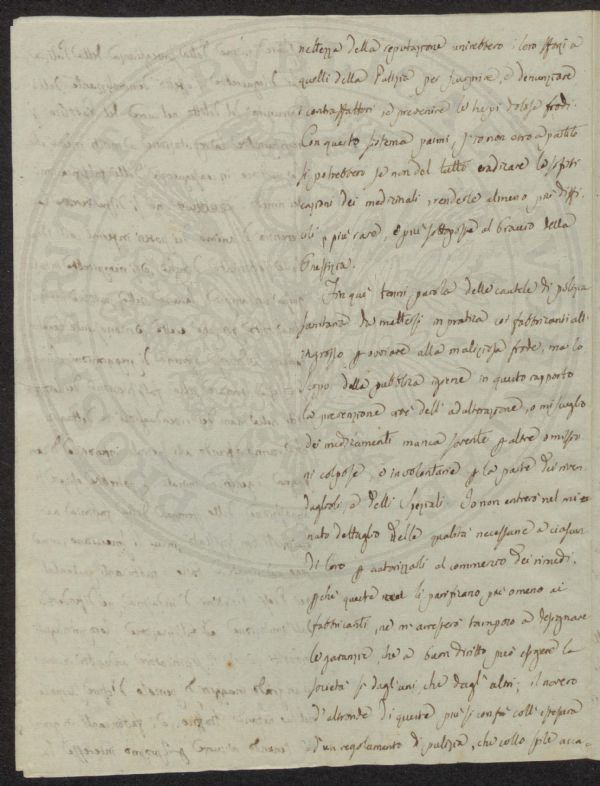 nettezza della esecuzione unirebbero i loro sforzi a
quelli della Pulizia per scuoprire, e denunziare
i contraffattori e prevenire le turpi dolose frodi.
Con questo sistema parmi, s'io non erro a partito
si potrebbero se non del tutto eradicare le sofisti
cazioni dei medicinali, renderle almeno più diffi
cili, più rare, e più sottoposte al braccio della
Giustizia.
Fin quì tenni parola delle cautele di polizia
sanitaria da mettersi in pratica coi fabbricanti all'
ingrosso p ovviare alla maliziosa frode, ma lo
scopo della pubblica igiene in questo rapporto
la prevenzione cioè dell'adulterazione, o miscuglio
dei medicamenti manca sovente p altre omissio
ni colpose, e involontarie p la parte dei riven
daglioli, o delli Speziali. Io non entrerò nel mi
nuto dettaglio delle qualità necessarie a ciascun
di loro p autorizzarli al commercio dei rimedi,
p chè queste li parificano più o meno ai
fabbricanti, nè m'arresterò tampoco a disegnare
le garanzie che a buon diritto può esigere la
società sì dagli uni, che dagl'altri; il novero
d'altronde di queste più si confà coll'estesura
d'un regolamento di pulizia, che collo stile acca-